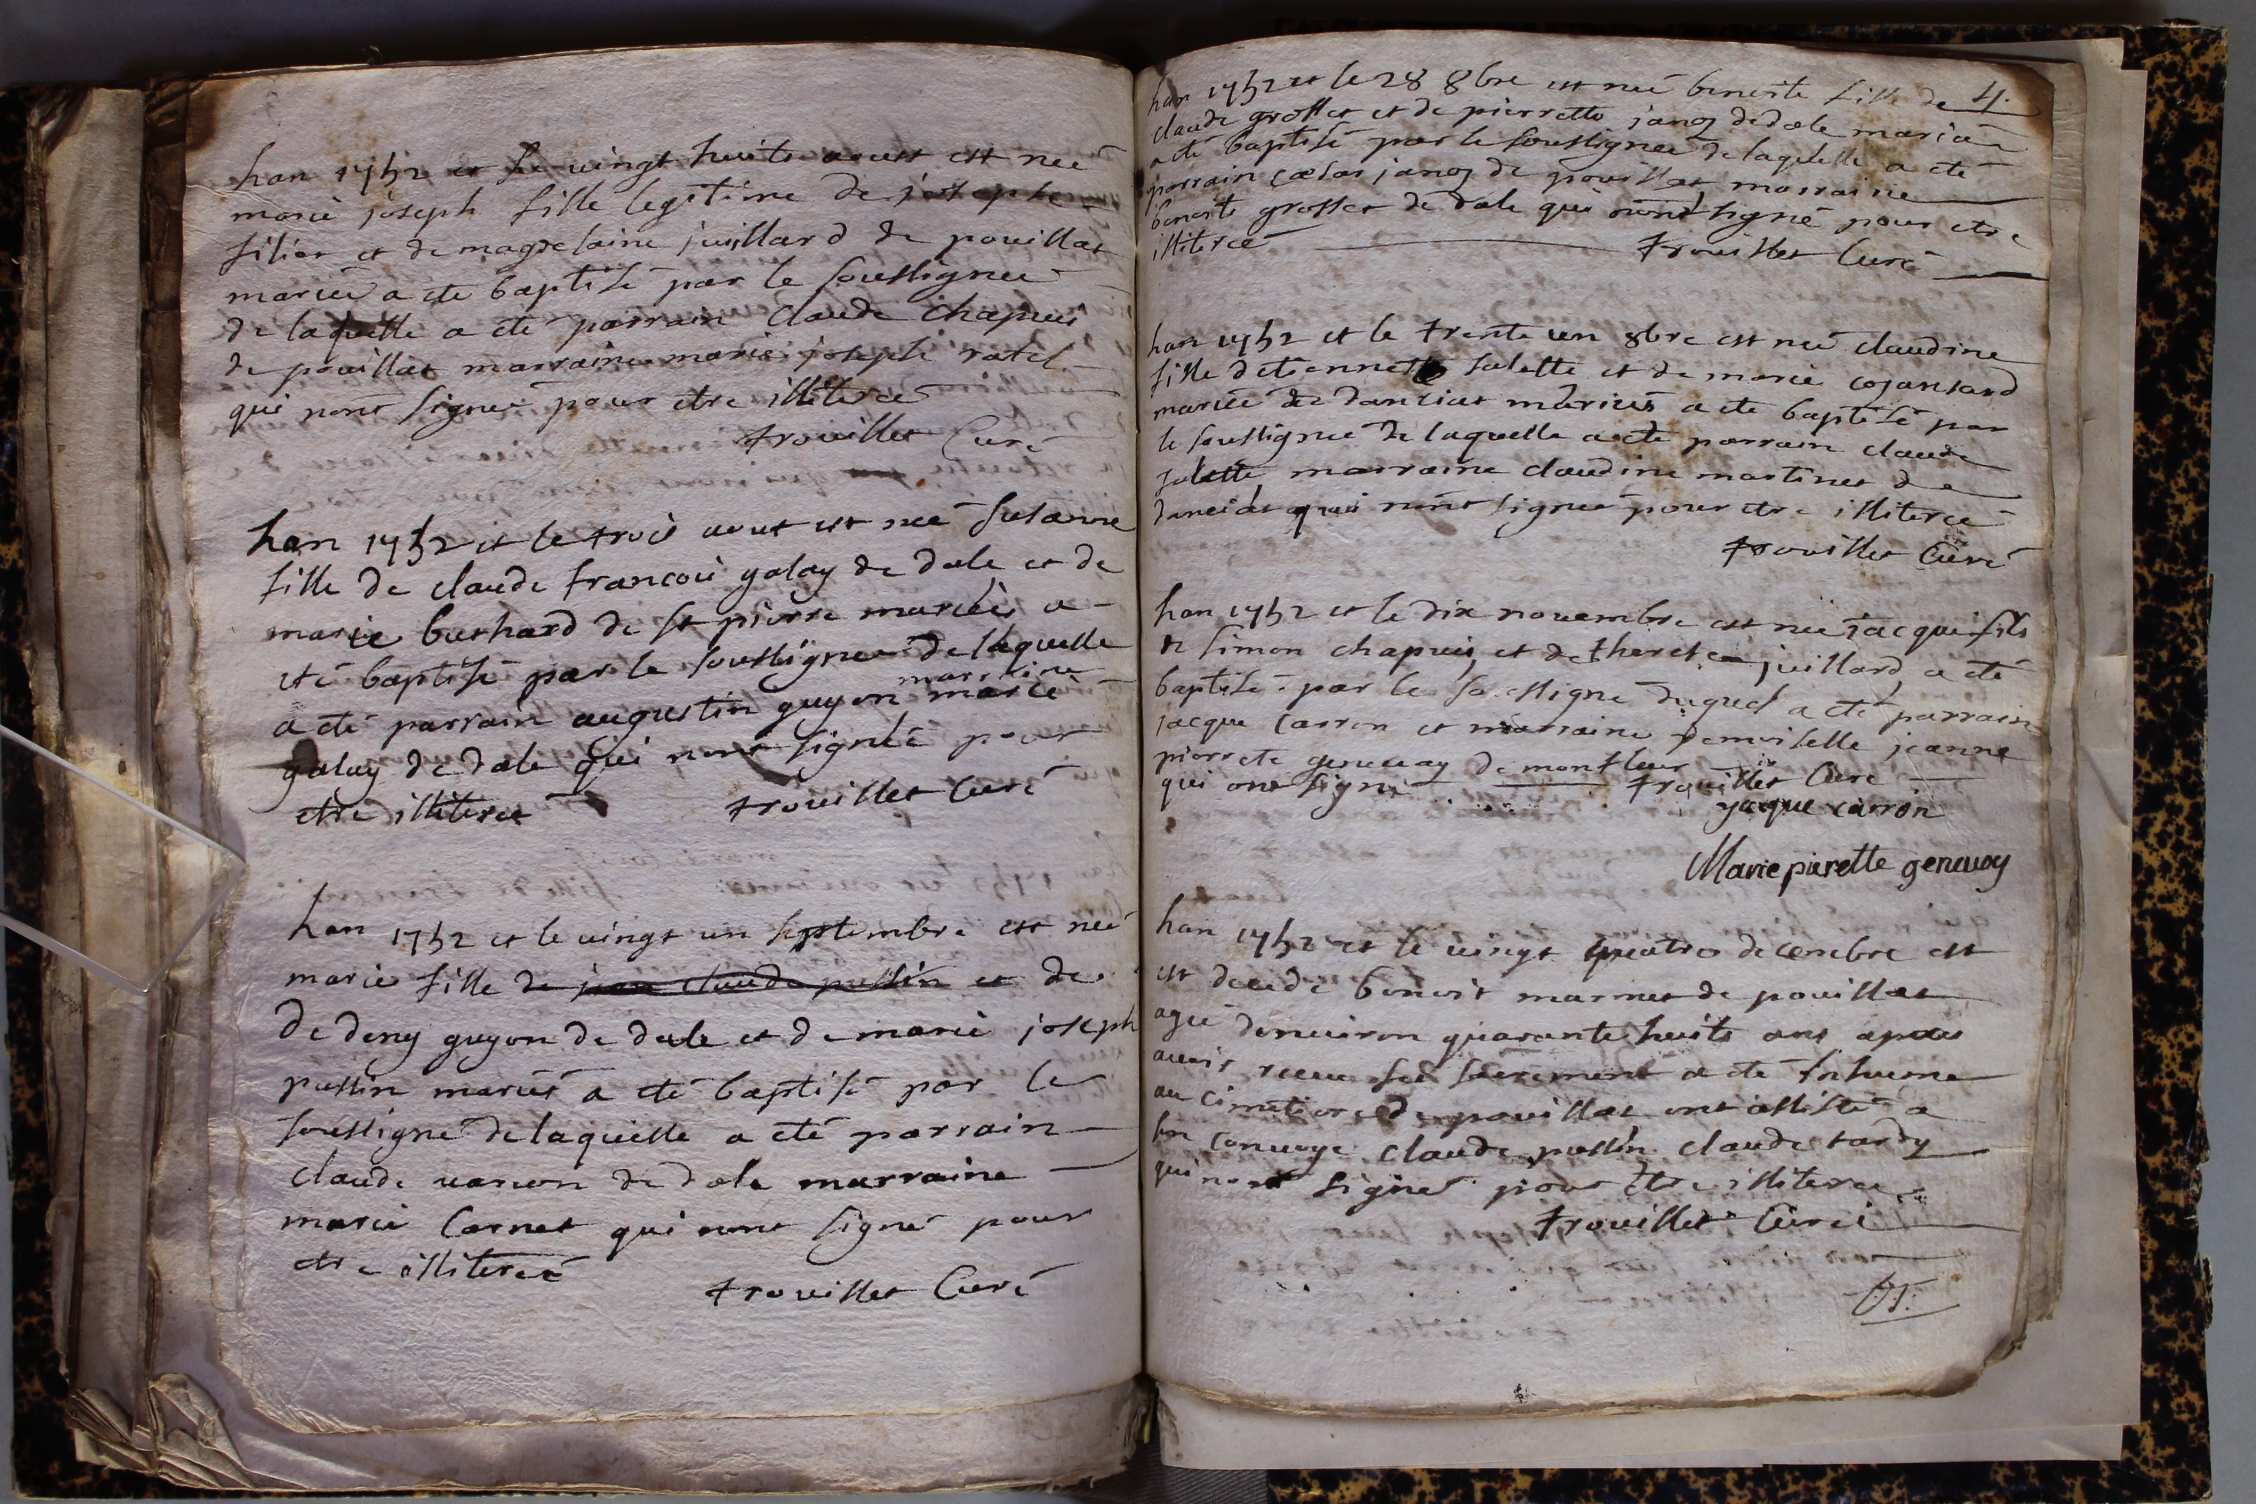 han 1752 et le vingt huite aoust est neé
marié joseph fille legitime de josephe
filier et de magdelaine juillard de pouillat
marieé a eté baptisé par le soussigneé
de laquelle a eté parrain Claude Chapuis
de pouillat marraine marie joseph ratel
qui nont signeé pour etre illitereé
trouillet Curé
han 1752 et le trois aout est neé susanne
fille de claude francois galay de dole et de
marie buthard de st pierre marieés a
eté baptisé par le soussigneé de laquelle
marraine
a eté parrain augustin guyon marié
galay de dole qui nont signéé pour
etre illitereé trouillet Curé
han 1752 et le vingt un septembre est neé
marie fille de jean claude pussin et de
de deny guyon de dole et de marié joseph
pussin mariés a eté baptisé par le
soussigné de laquelle a eté parrain
claude varion de dole marraine
marié Carnet qui nont signé pour
etre illitereé
trouillet Curé
4.
han 1752 et le 28 8bre est neé benoite fille de
claude grosset et de pierrette janoz de dole marieés
a eté baptisé par le soussigneé de laquelle a eté
parrain janoz de pouillat marraine
benoite grosset de dole qui nont signé pour etre
illitereé trouillet Curé
han 1752 et le trente un 8bre est neé claudine
fille detiennette salette et de marié cojansard
marieé de danciat mariés a eté baptisé par
le soussigneé de laquelle a eté parrain claude
salette marraine claudine martinet de
danciat qui nont signeé pour etre illitereé
trouillet Curé
han 1752 et le dix novembre est neé jacque fils
de simon chapuis et de therese juillard a eté
baptisé par le soussigné duquel a eté parrain
jacque carron et marraine demoiselle jeanne
pierrete genuoy de montfleur
qui ont signé trouillet Curé
yaque carron
Marie pierette genuoy
han 1752 et le vingt quatre decembre est
est decedé benoit marmet de pouillat
ageé denuiron quarante huite ans apres
auoir receu ses sacrement a eté inhumé
au cimetiere de pouillat ont assisté a
son conuoye claude pussin claude tardy
qui nont signé pour etre illitereé
trouillet Curé